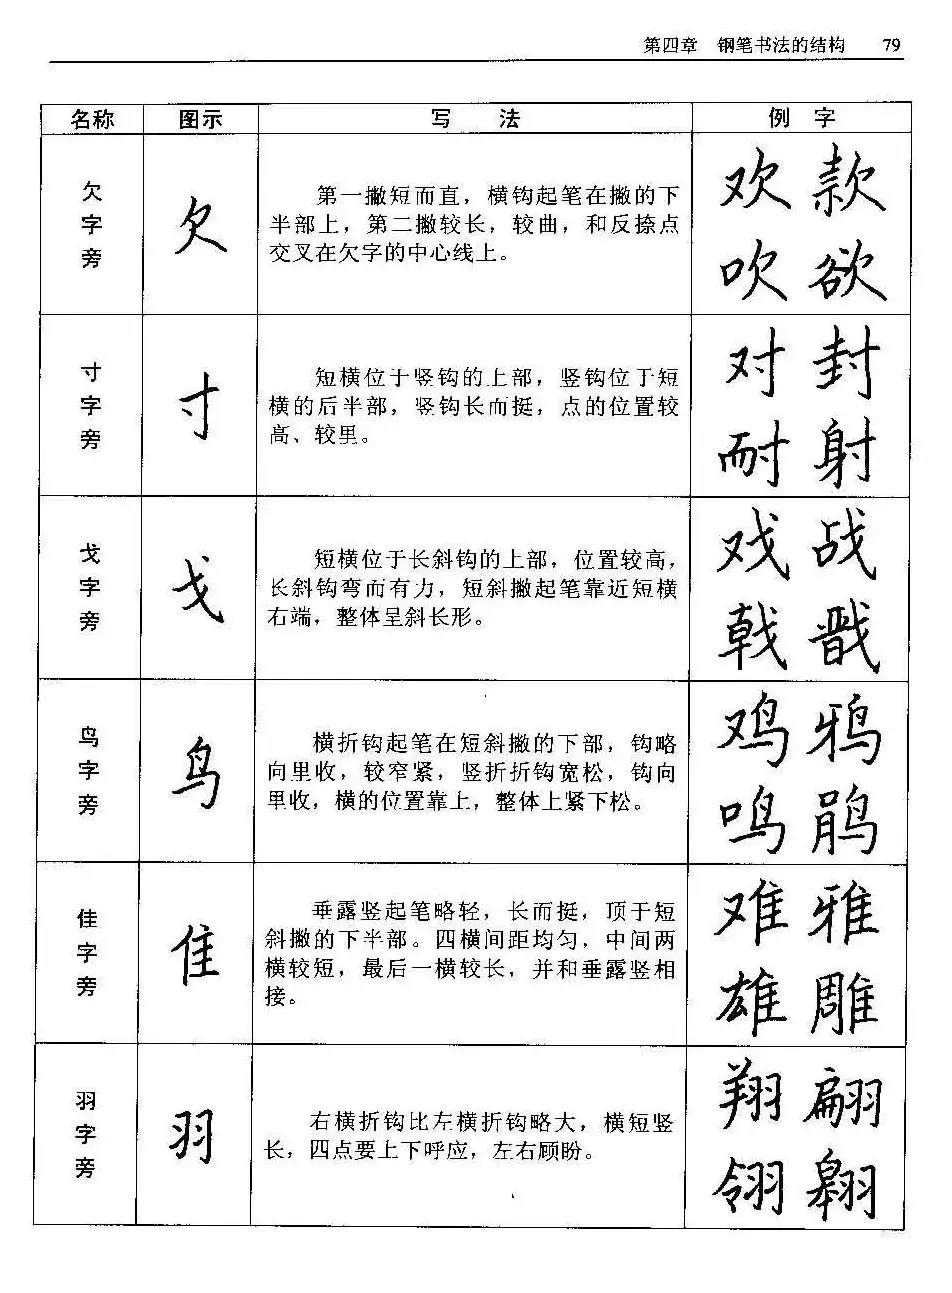 第四章 钢笔书法的结构 79
名称 图示 写 法 例 字
欠字旁
欠
第一撇短而直，横钩起笔在撇的下
半部上，第二撇较长，较曲，和反捺点
交叉在欠字的中心线上。
欢 款
吹 欲
寸字旁
寸
短横位于竖钩的上部，竖钩位于短
横的后半部，竖钩长而挺，点的位置较
高、较里。
对 封
耐 射
戈字旁
戈
短横位于长斜钩的上部，位置较高，
长斜钩弯而有力，短斜撇起笔靠近短横
右端，整体呈斜长形。
戏 战
戟 戬
鸟字旁
鸟
横折钩起笔在短斜撇的下部，钩略
向里收，较窄紧，竖折折钩宽松，钩向
里收，横的位置靠上，整体上紧下松。
鸡 鸦
鸣 鹃
佳字旁
隹
垂露竖起笔略轻，长而挺，顶于短
斜撇的下半部。四横间距均匀，中间两
横较短，最后一横较长，并和垂露竖相
接。
难 雅
雄 雕
羽字旁
羽
右横折钩比左横折钩略大，横短竖
长，四点要上下呼应，左右顾盼。
翔 翩
翎 翱